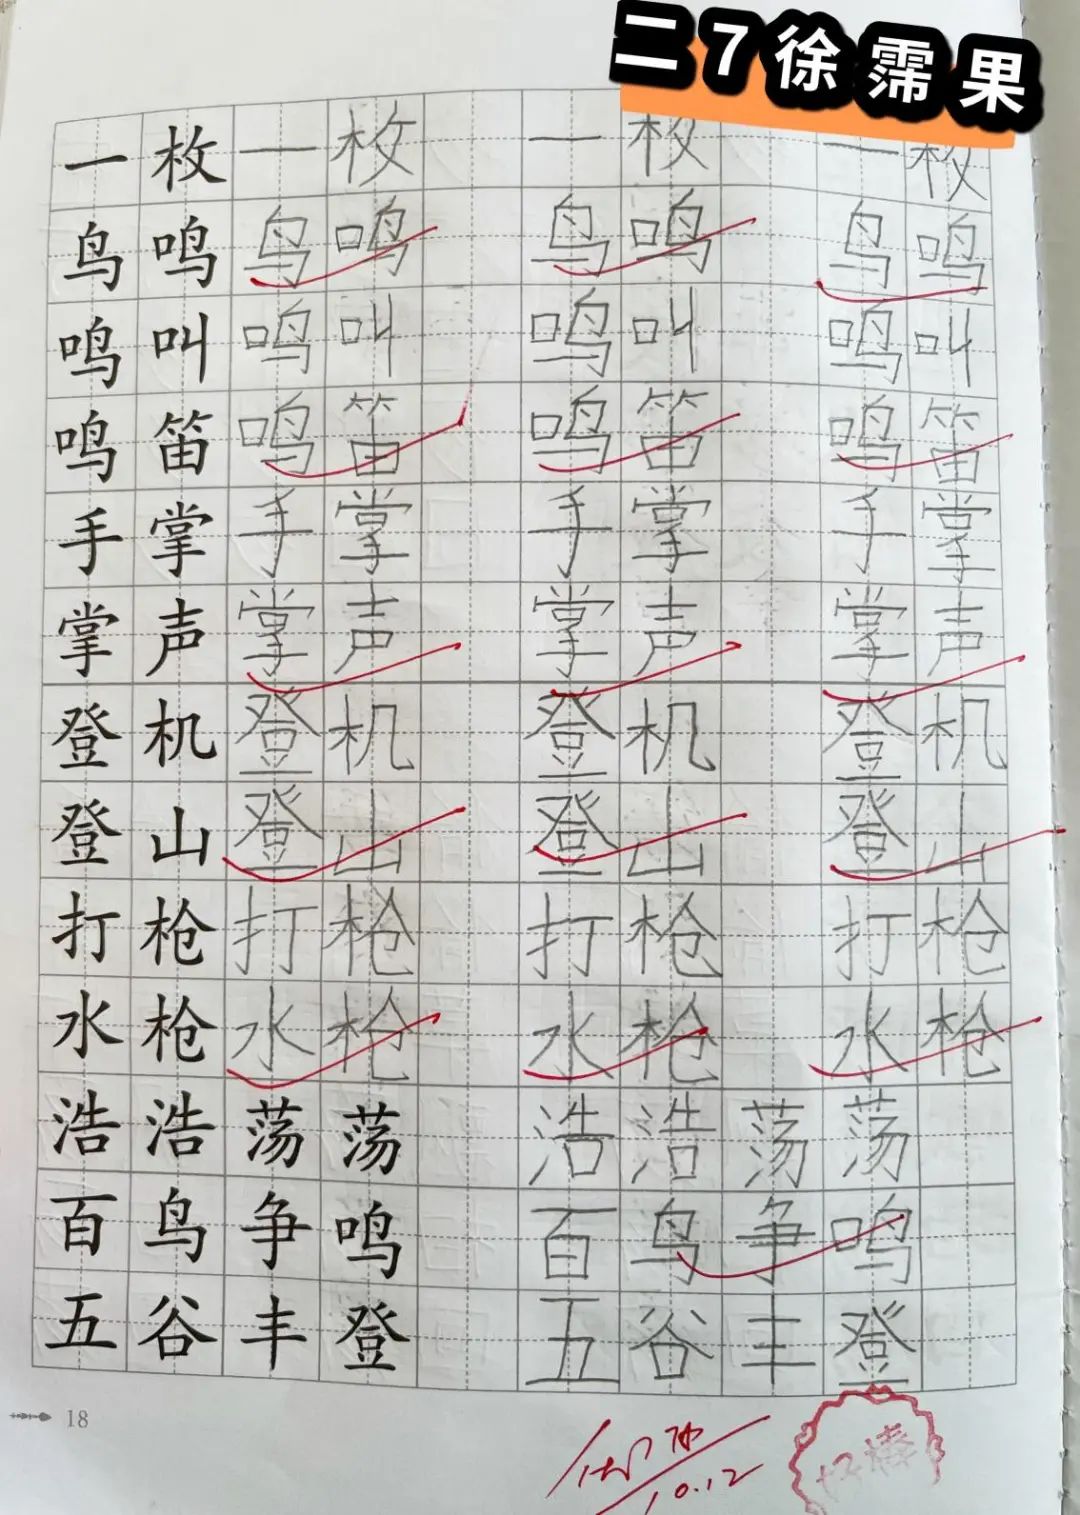 二7徐霈果
一枚一枚 一枚 一枚
鸟鸣鸟鸣 鸟鸣 鸟鸣
鸣叫鸣叫 鸣叫 鸣叫
鸣笛鸣笛 鸣笛 鸣笛
手掌手掌 手掌 手掌
掌声掌声 掌声 掌声
登机登机 登机 登机
登山登山 登山 登山
打枪打枪 打枪 打枪
水枪水枪 水枪 水枪
浩浩荡荡 浩浩荡荡
百鸟争鸣 百鸟争鸣
五谷丰登 五谷丰登
18
10.12
好棒